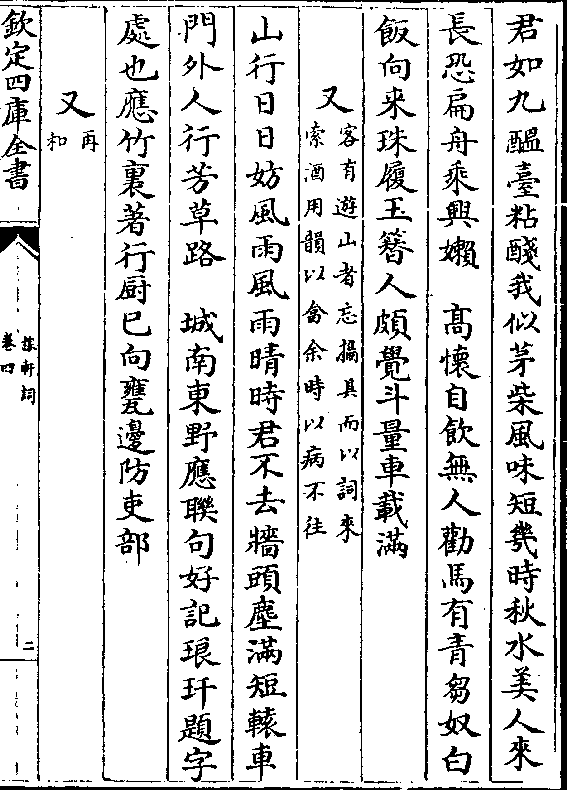 君如九醖臺粘醆我似茅柴風味短幾時秋水美人來
長恐扁舟乘興嬾　髙懷自飲無人勸馬有青芻奴白
飯向來珠履玉簪人頗覺斗量車載滿
又客有遊山者忘攜具而以詞來
索酒用韻以畣余時以病不往
山行日日妨風雨風雨晴時君不去牆頭塵滿短轅車
門外人行芳草路　城南東野應聯句好記琅玕題字
處也應竹裏著行厨已向甕邊防吏部
又再
和
欽定四庫全書
稼軒詞
卷四
二